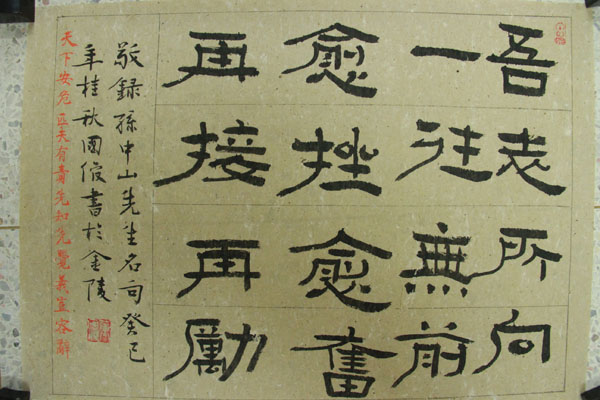 吾志所向
一往無前
愈挫愈奮
再接再勵
敬錄孫中山先生名句癸巳
年桂秋國俊書於金陵
天下安危匹夫有責先知先覺義豈容辭